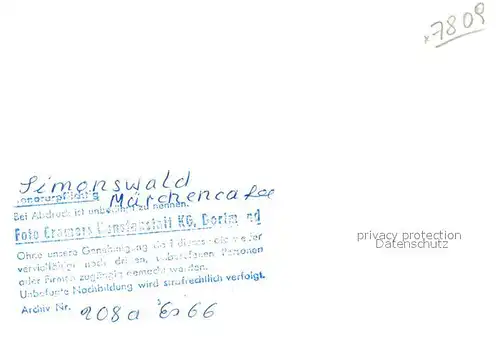 x7809
Simonswald
Märchencafee
Honorarpflichtig
Bei Abdruck ist unbedingt zu nennen:
Foto Cramers Kunstanstalt KG, Dortmund
privacy protection
Datenschutz
Ohne unsere Genehmigung darf dieses nie weiter
vervielfältigt noch dritten, unberufenen Personen
oder Firmen zugängig gemacht werden.
Unbefugte Nachbildung wird strafrechtlich verfolgt.
Archiv Nr. 208a Es 66